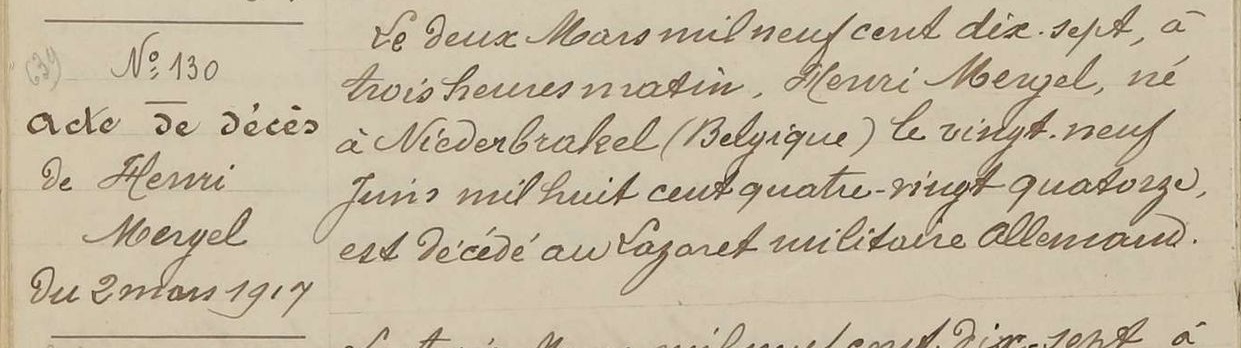 639
Nº 130
acte de décès
de Henri
Mergel
du 2 mars 1917
Le deux Mars mil neuf cent dix. sept, à
trois heures matin, Henri Mergel, né
à Niederbrakel (Belgique) le vingt. neuf
Juin mil huit cent quatre-vingt quatorze,
est décédé au Lazaret militaire Allemand.
Mars mil neuf cent. dix. sept à